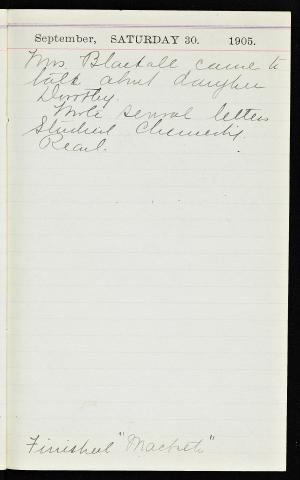 September, SATURDAY 30. 1905.
Mrs. Blackall came to
talk about daughter
Dorothy.
Wrote several letters
Studied Chemistry.
Read.
Finished "Macbeth"